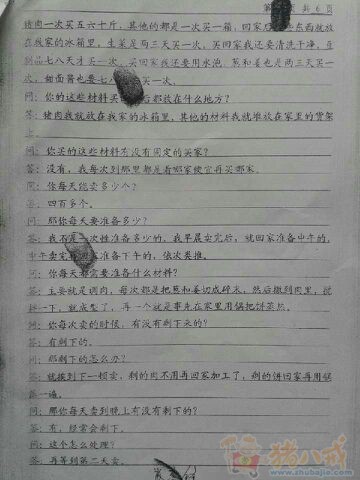 第 页 共 6 页
猪肉一次买五六十斤，其他的都是一次买一箱，回家后 些东西就放
在我家的冰箱里，生菜是两三天买一次，买回家我还要清洗干净，豆
制品七八天才买一次，买回来我还要用水泡，葱和姜也是两三天买一
次，甜面酱也要七八 买一次。
问：你的这些材料买 后都放在什么地方？
答：猪肉我就放在我家的冰箱里，其他的材料我就堆放在家里的货架
上。
问：你买的这些材料有没有固定的买家？
答：没有，我每次到那里都是看哪家便宜再买哪家。
问：你每天能卖多少个？
答：四百多个。
问：那你每天要准备多少？
答：我不是一次性准备多少的，我早晨卖完后，就回家准备中午的，
中午卖完 准备下午的，依次类推。
问：你每天都需要准备什么材料？
答：主要就是调肉，每次都是把葱和姜切成碎末，然后撒到肉里，搅
拌一下，就成型了，再一个就是事先在家里用锅把饼蒸热。
问：你每次卖的时候，有没有剩下来的？
答：有剩下的。
问：那剩下的怎么办？
答：就接到下一顿卖，剩的肉不用再回家加工了，剩的饼回家再用锅
蒸一遍。
问：那你每天卖到晚上有没有剩下的？
答：有，经常会剩下。
问：这个怎么处理？
答：再等到第二天卖。
猪八戒
zhubajie.com